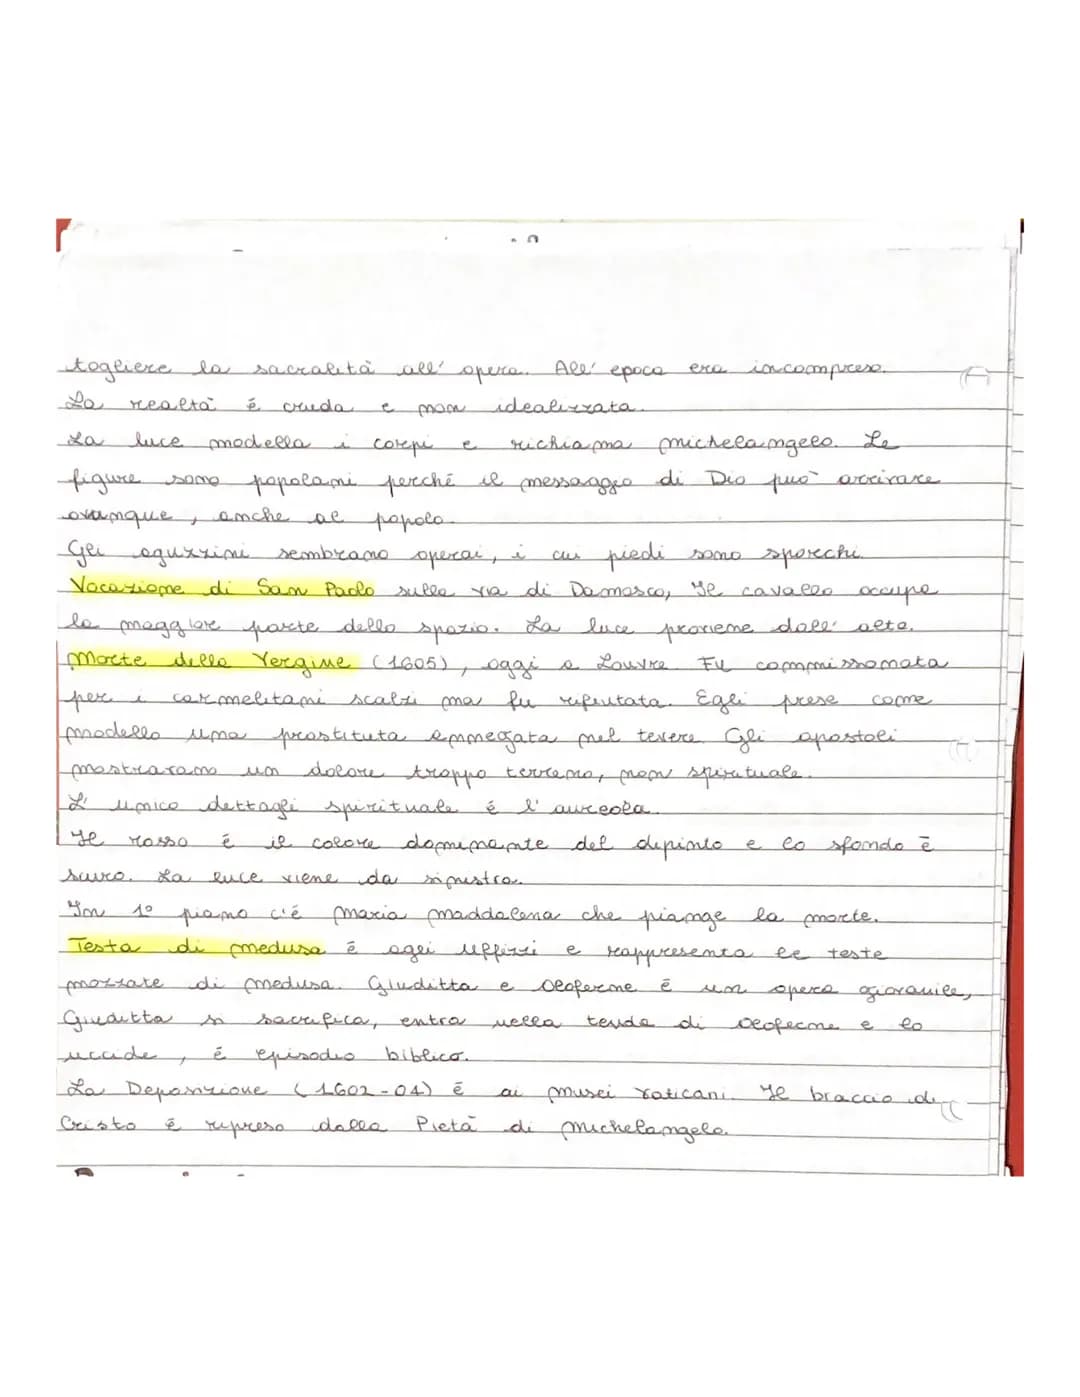 togliere la sacralità all' opera. All' epoca era incompreso.
La realtà é cruda e non idealizzata.
La luce modella i corpi e richiama michelangelo. Le
figure sono popolani perché il messaggio di Dio può arrivare
ovunque, anche al popolo.
Gli aguzzini sembrano operai, i cui piedi sono sporchi.
Vocazione di San Paolo sulla via di Damasco, Il cavallo occupa
la maggiore parte dello spazio. La luce proviene dall' alto.
Morte della Vergine (1605), oggi a Louvre. Fu commissionata
per i carmelitani scalzi ma fu rifiutata. Egli prese come
modello una prostituta annegata nel tevere. Gli apostoli
mostravano un dolore troppo terreno, non spirituale.
L' unico dettagli spirituale é l' aureola.
Il rosso é il colore dominante del dipinto e lo sfondo é
scuro. La luce viene da sinistra.
In 1° piano c'é maria maddalena che piange la morte.
Testa di medusa é agli uffizzi e rappresenta le teste
mozzate di medusa. Giuditta e Oloferne é un opera giovanile,
Giuditta si sacrifica, entra nella tenda di Oloferne e lo
uccide, é episodio biblico.
La Deposizione (1602-04) é ai musei vaticani. Il braccio di
Cristo é ripreso dalla Pietà di michelangelo.